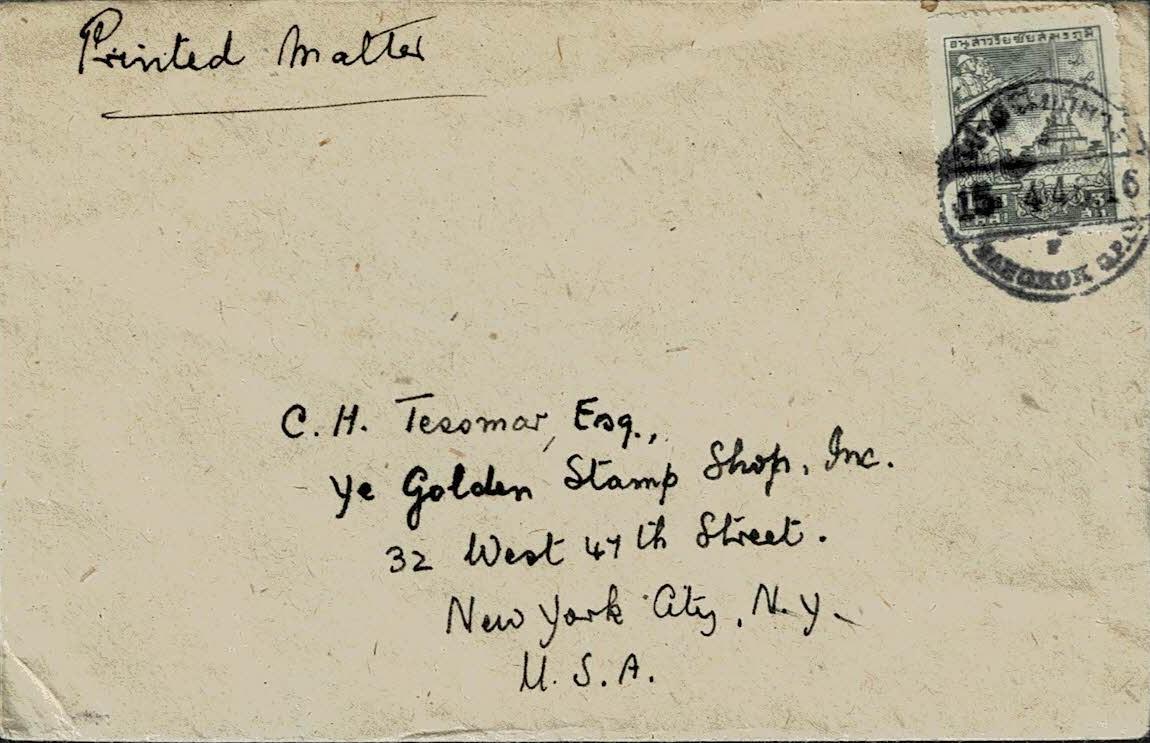 Printed Matter
อนุสาวรีย์ชัยสมรภูมิ
15 4 46 16
BANGKOK G.P.O.
C. H. Tesomar, Esq.,
Ye Golden Stamp Shop, Inc.
32 West 47th Street.
New York City, N.Y.
U.S.A.